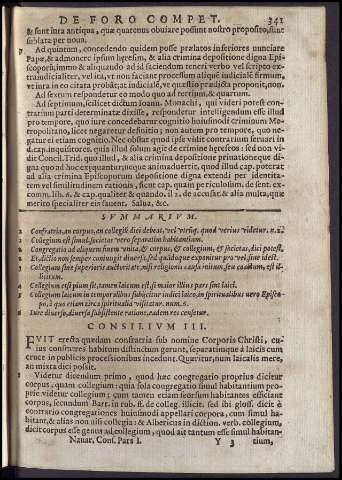 DE FORO COMPET. 341
& sunt iura antiqua, quæ quatenus obuiare possunt nostro proposito, sunt
sublata per noua.
Ad quintum, concedendo quidem posse prælatos inferiores nunciare
Papæ, & admonere ipsum hæresim, & alia crimina depositione digna Epi
scoporum, immo & aliquando ad id faciendum teneri verbo vel scripto ex-
traiudicialiter, vel ita, vt non faciant processum aliquē iudicialē firmum,
vt intra in eo citata probāt, iudicialē, vt quæstio prædicta proponit, non.
Ad sextum respondetur eo modo quo ad tertium, & quartum.
Ad septimum, scilicet dictum Ioann. Monachi, qui videri potest con-
trariam parti determinatæ dixisse, respondetur intelligendum esse illud
pro tempore, quo iure concedebatur cognitio huiusmodi criminum Me-
tropolitano, licet negaretur definitio; non autem pro tempore, quo ne-
gatur ei etiam cognitio. Nec obstat quod ipse vidit contrarium seruari in
d. cap. inquisitores. quia illud solum agit de crimine hæresis: sed non vi-
dit Concil. Trid. quo illud, & alia crimina depositione priuationeque di-
gna quo ad hoc æquantur; neque animaduertit, quod illud cap. poterat
ad alia crimina Episcoporum depositione digna extendi per identita-
tem vel similitudinem rationis, sicut cap. quam periculosum. de sent. ex-
comm. lib. 6. & cap. qualiter & quando. il 2. de accusat. & alia multa, quæ
merito specialiter eis fauent. Salua, &c.
SVMMARIVM.
1 Confratria, an corpus, an collegiū dici debeat, vel vtrūq, quod verius videtur. n. 2.
2 Collegium est simul societas vero separatim habitantium.
3 Congregatio ad aliquem finem vnita, & corpus, & collegium, & societas, dici potest.
4 Et, dictio non semper coniungit diuersa, sed quādoque exponitur pro vel, siue idest.
Collegium sine superioris auctoritate, nisi religionis causa initum seu coactum, est il-
licitum.
Collegium est pium sit, tamen laicum est, si maior illius pars sint laici.
Collegium laicum in temporalibus subijcitur iudici laico, in spiritualibus vero Episco-
po, à quo etiam circa spiritualia visitatur. num. 6.
Iure diuerso, diuersa subsistente ratione, eadem res censetur.
CONSILIVM III.
FVIT erecta quædam confratria sub nomine Corporis Christi, cu-
ius confratres habitum distinctum gerunt, separatimque à laicis cum
cruce in publicis processionibus incedunt. Quæritur, num laicalis mere,
an mixta dici possit.
Videtur dicendum primo, quod hæc congregatio proprius dicitur
corpus, quam collegium: quia sola congregatio simul habitantium pro-
prie videtur collegium; cum tamen etiam seorsum habitantes efficiant
corpus, secundum Bart. in rub. ff. de colleg. illicit. sed ibi gloss. dicit è
contrario congregationes huiusmodi appellari corpora, cum simul ha-
bitant, & alias non nisi collegia: & Albericus in diction. verb. collegium,
dicit corpus esse genus ad collegium, quod ait tantum esse simul habitan-
Nauar. Cons. Pars I. Y 3 tium,